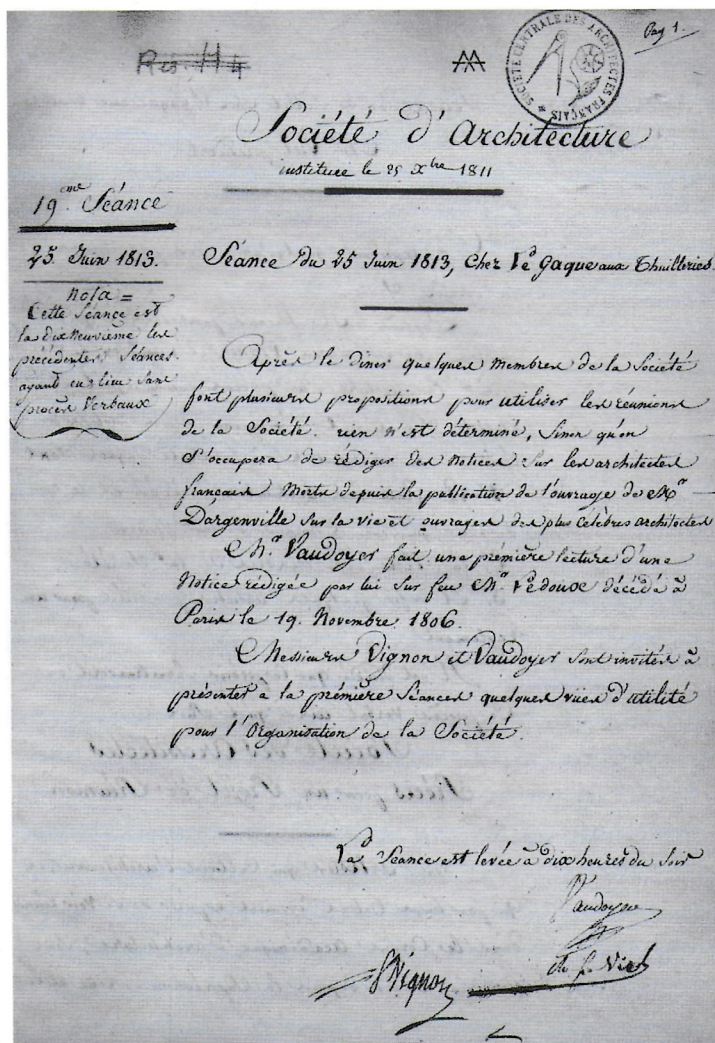 Pag 1.
SOCIÉTÉ CENTRALE DES ARCHITECTES FRANÇAIS
Société d'Architecture
instituée le 25 Xbre 1811
19eme Séance
25. Juin 1813.
Nota =
Cette Séance est
la dixneuvième les
précédentes Séances
ayant eu lieu sans
procès Verbaux
Séance du 25 Juin 1813, Chez aux Thuilleries.
Après le diner quelques membres de la Société
font plusieurs propositions pour utiliser les réunions
de la Société. rien n'est déterminé, sinon qu'on
s'occupera de rédiger des Notices sur les architectes
français Morts depuis la publication de l'ouvrage de Mr
Dargenville sur la vie et ouvrages des plus célèbres architectes
Mr. Vaudoyer fait une prémière lecture d'une
Notice rédigée par lui sur feu Mr. Ledoux décédé à
Paris le 19. Novembre 1806.
Messieurs Vignon et Vaudoyer sont invités à
présenter a la prémière Séance quelques vües d'utilité
pour l'Organisation de la Société.
La Séance est levée à dix heures du soir
Vaudoyer
Vignon
Ch. f. Viel